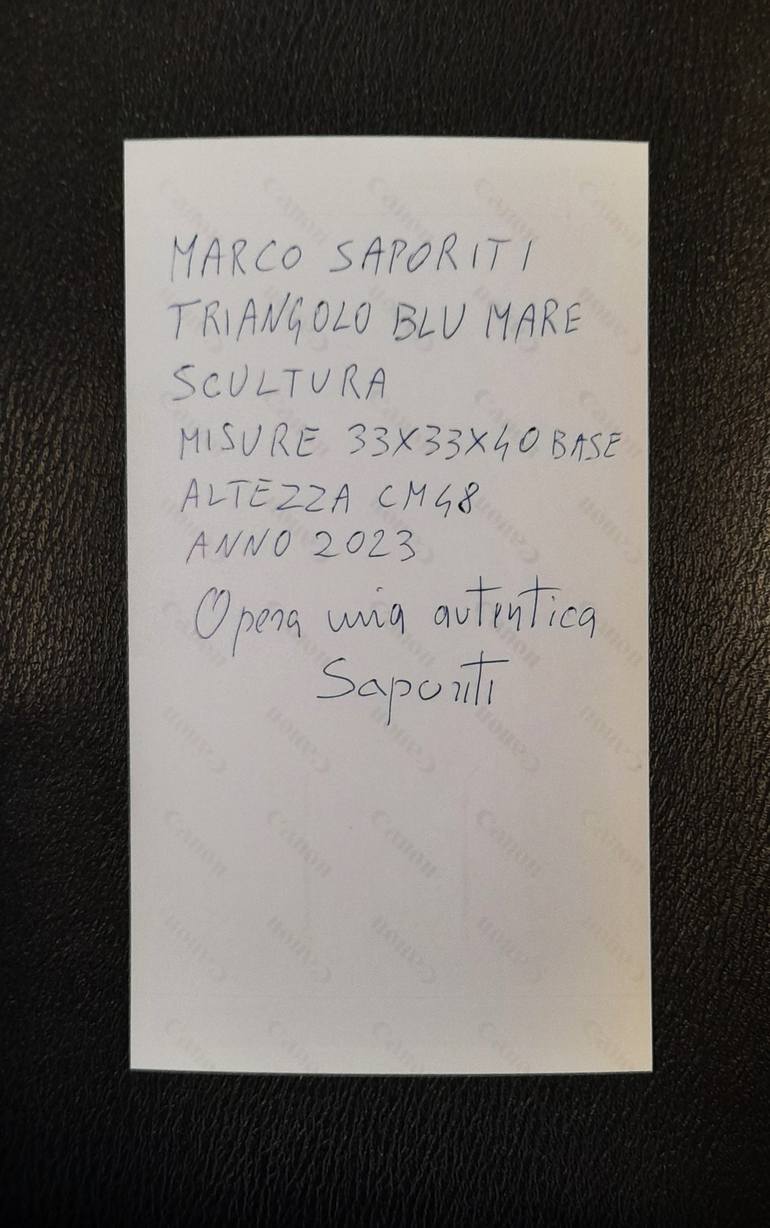 MARCO SAPORITI
TRIANGOLO BLU MARE
SCULTURA
MISURE 33X33X40 BASE
ALTEZZA CM48
ANNO 2023
Opera mia autentica
Saporiti